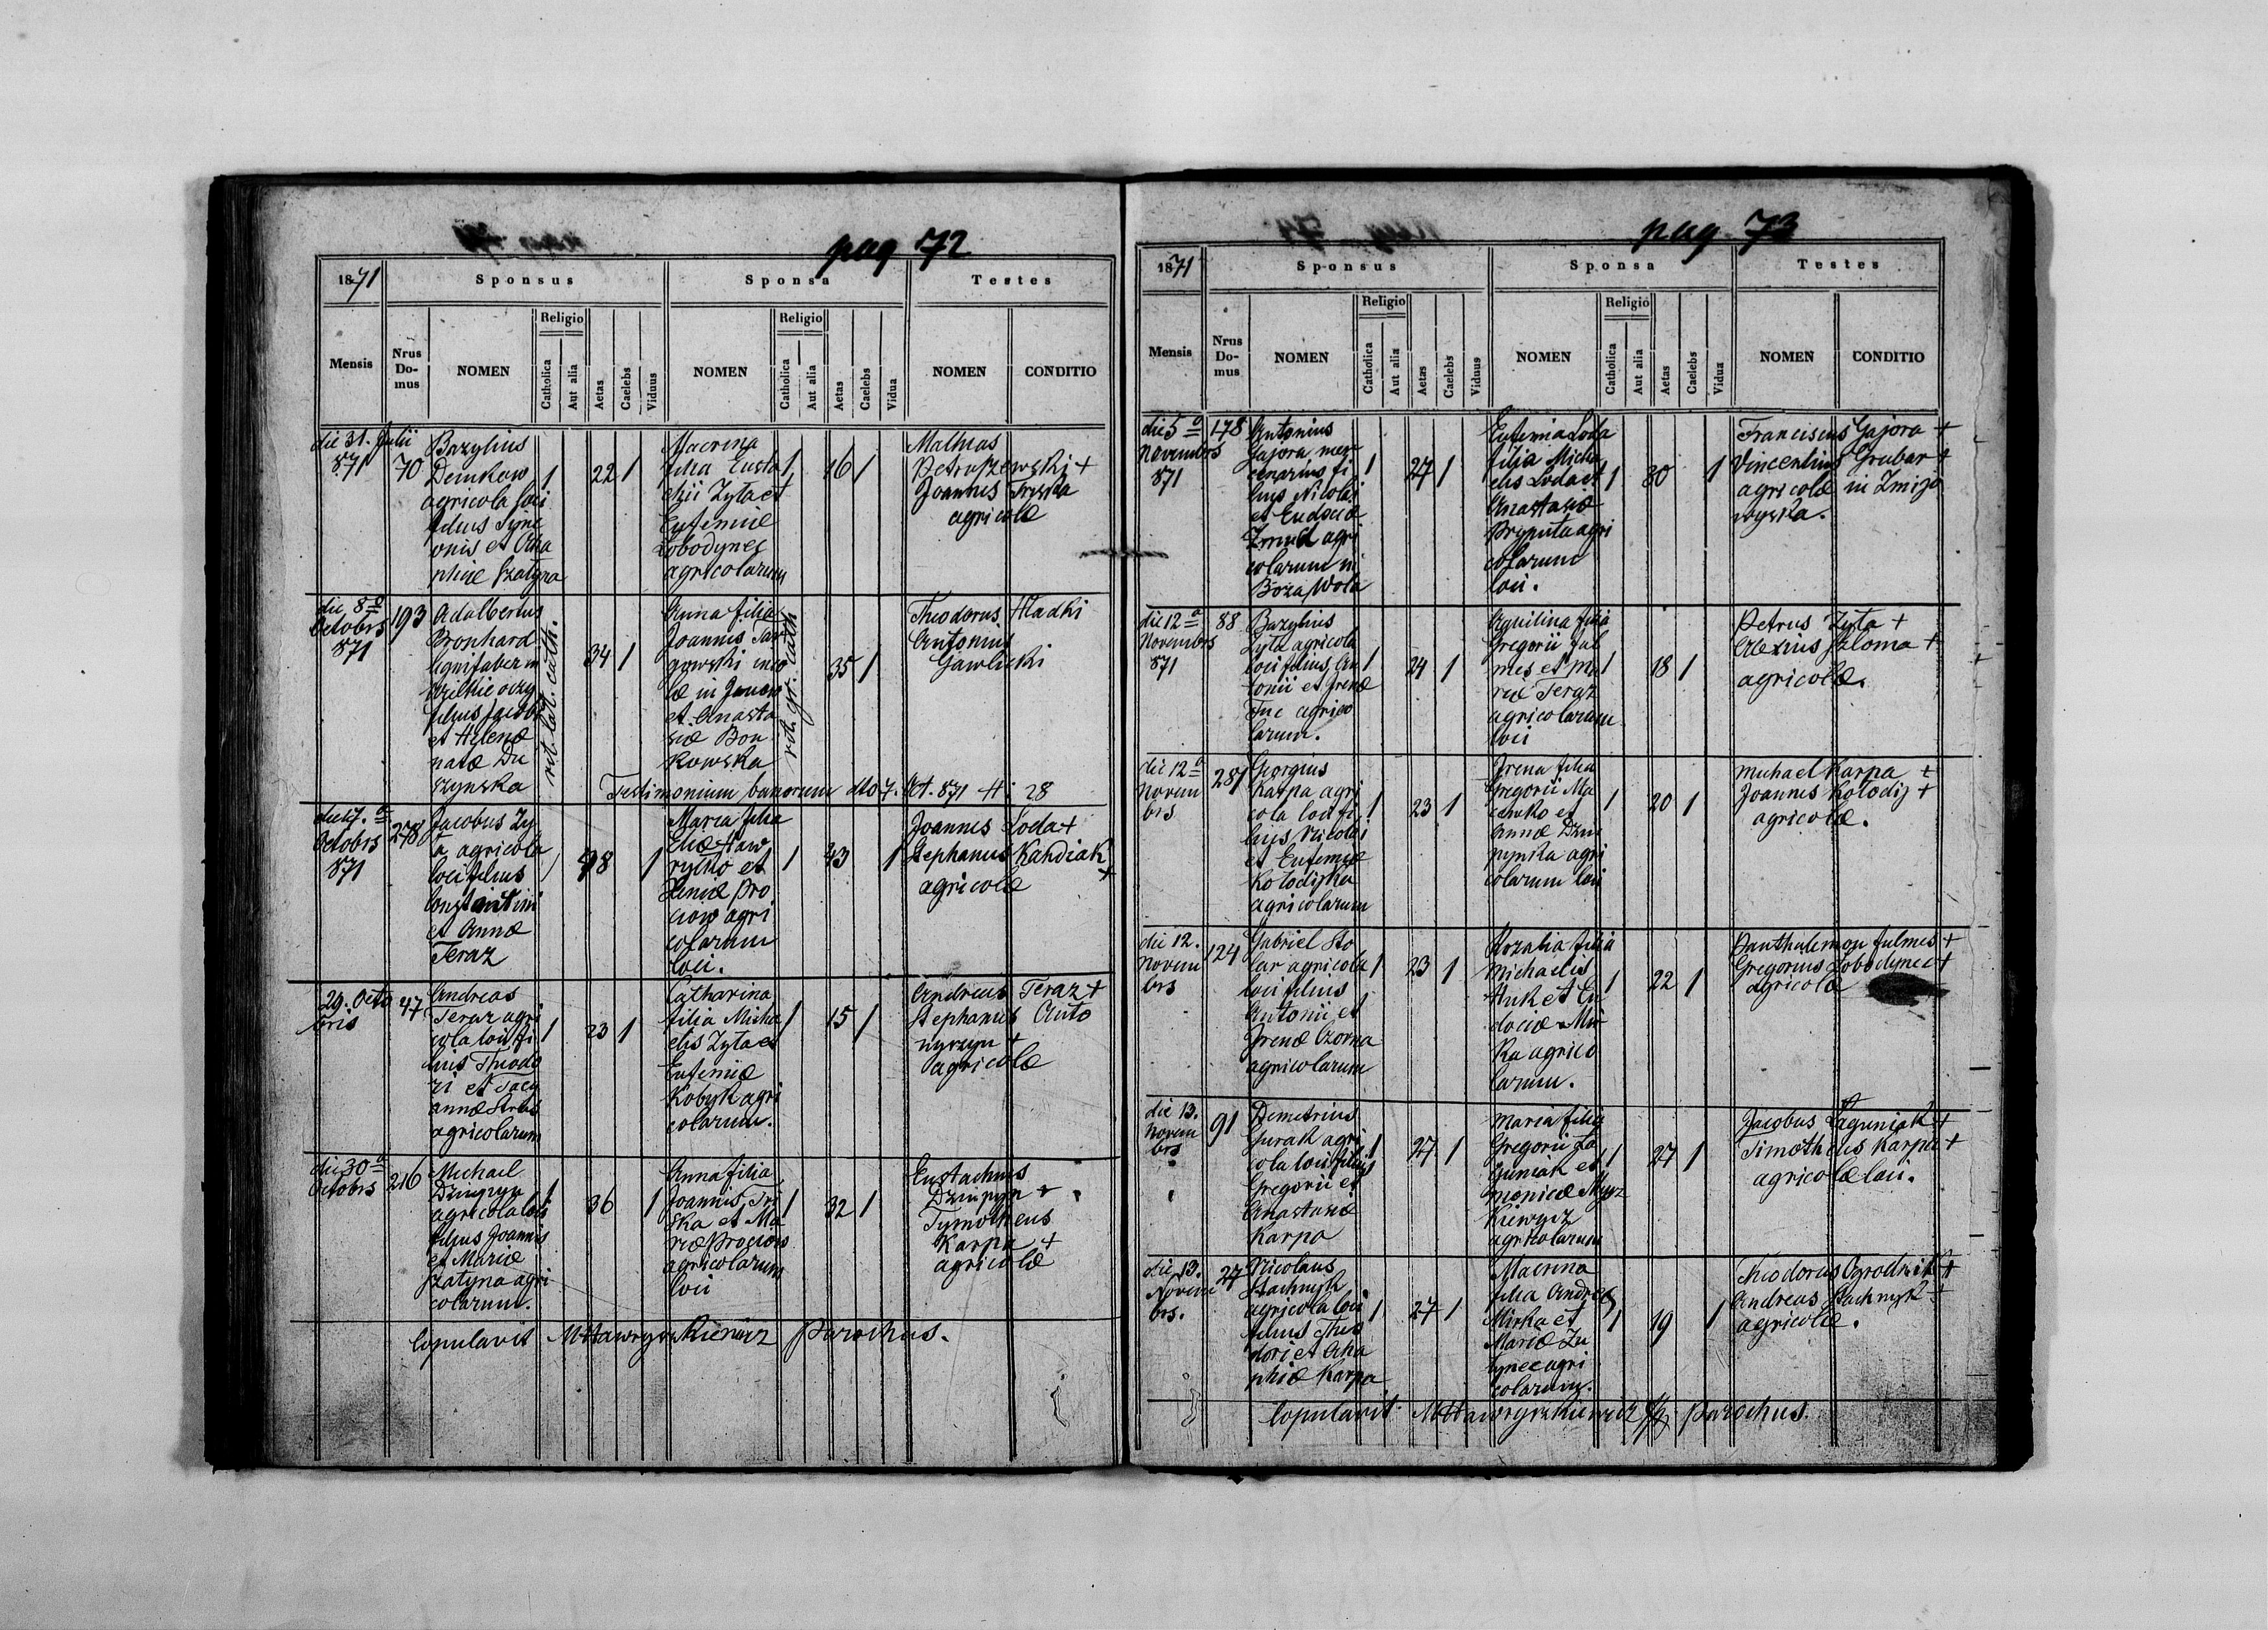 pag 72
1871
Sponsus
Sponsa
Testes
Mensis
Nrus Do-mus
NOMEN
Religio
Catholica
Aut alia
Aetas
Caelebs
Viduus
NOMEN
Religio
Catholica
Aut alia
Aetas
Caelebs
Vidua
NOMEN
CONDITIO
die 31. Julii
871
70
Bazylius
Demkow
agricola loci
filius Syme
onis et Aha
phiæ Szatyna
1
22
1
Macrina
filia Eusta
chii Zyta et
Eufemiæ
Lobodynec
agricolarum
1
16
1
Mathias
Petruszewski +
Joannes Tryska
agricolæ
die 8ª
Octobris
871
193
Adalbertus
Bronhard
lignifaber in
Wilkie oczy
filius Jacobi
et Helenæ
natæ Du
szynska
rit. lat. cath.
34
1
Anna filia
Joannis Tar
gowski inco
læ in
et Anasta
siæ Bon
kowska
rit. gr. cath
35
1
Theodorus Hladki
Antonius
Gawlicki
Testimonium banorum dto 7. Oct. 871 H 28
die 17.ª
Octobris
871
278
Jacobus Zy
ta agricola
loci filius
Constantini
et Annæ
Teraz
1
48
1
Maria filia
Eliæ Haw
rylko et
Xeniæ Pro
ciow agri
colarum
loci.
1
43
1
Joannes Loda +
Stephanus Kandiak +
agricolæ
29. Octo
bris
47
Andreas
Teraz agri
cola loci fi
lius Theodo
ri et Tacy
annæ Strus
agricolarum
1
23
1
Catharina
filia Micha
elis Zyta et
Eufemiæ
Kobyk agri
colarum.
1
15
1
Andreas Teraz +
Stephanus Anto
nyszyn +
agricolæ
die 30ª
Octobris
216
Michael
Dzuipyn
agricola loci
filius Joannis
et Mariæ
Szatyna agri
colarum.
1
36
1
Anna filia
Joannis Try
ska et Ma
riæ Prociow
agricolarum
loci
1
32
1
Eustachius
Dzuipyn +
Tymotheus
Karpa +
agricolæ
Copulavit MHawryszkiewicz Parochus.
pag. 73
1871
Sponsus
Sponsa
Testes
Mensis
Nrus Do-mus
NOMEN
Religio
Catholica
Aut alia
Aetas
Caelebs
Viduus
NOMEN
Religio
Catholica
Aut alia
Aetas
Caelebs
Vidua
NOMEN
CONDITIO
die 5ª
Novembris
871
178
Antonius
Gajora mer
cenarius fi
lius Nicolai
et Eudociæ
Zmud agri
colarum in
Boza Wola
1
27
1
Eufemia Loda
filia Micha
elis Loda et
Anastasiæ
Pryputa agri
colarum
loci.
1
30
1
Franciscus Gajora +
Vincentius Grubar +
agricolæ in Zmijo
wyska.
die 12ª
Novembris
871
88
Bazylius
Zyta agricola
loci filius An
tonii et Irenæ
Fuc agrico
larum.
1
24
1
Aquilina filia
Gregorii Jul
mes et Ma
riæ Teraz
agricolarum
loci
1
18
1
Petrus Zyta +
Alexius Szloma +
agricolæ.
die 12ª
Novem
bris
281
Georgius
Karpa agri
cola loci fi
lius Nicolai
et Eufemiæ
Kolodijka
agricolarum
1
23
1
Irena filia
Gregorii Ma
et
Annæ Dzui
pynka agri
colarum loci
1
20
1
Michael Karpa +
Joannes Kolodij +
agricolæ.
die 12.
Novem
bris
124
Gabriel Sto
lar agricola
loci filius
Antonii et
Irenæ Czorna
agricolarum
1
23
1
Rozalia filia
Michaelis
Huk et Eu
dociæ Mis
ka agrico
larum.
1
22
1
Panthalemon Julmes +
Gregorius Lobodynec +
agricolæ
die 13.
Novem
bris
91
Demetrius
Gurak agri
cola loci filius
Gregorii et
Anastasiæ
Karpa
1
27
1
Maria filia
Gregorii La
guniak et
Monicæ Mysz
kiewycz
agricolarum
1
27
1
Jacobus Laguniak +
Timotheus Karpa +
agricolæ loci.
die 13.
Novem
bris.
27
Nicolaus
Stachnyk
agricola loci
filius Theo
dori et Aha
phiæ Karpa
1
27
1
Macrina
filia Andreæ
Miska et
Mariæ Zu
tynec agri
colarum.
1
19
1
Theodorus Ogrodnik +
Andreas Stachnyk +
agricolæ.
Copulavit MHawryszkiewicz Parochus.